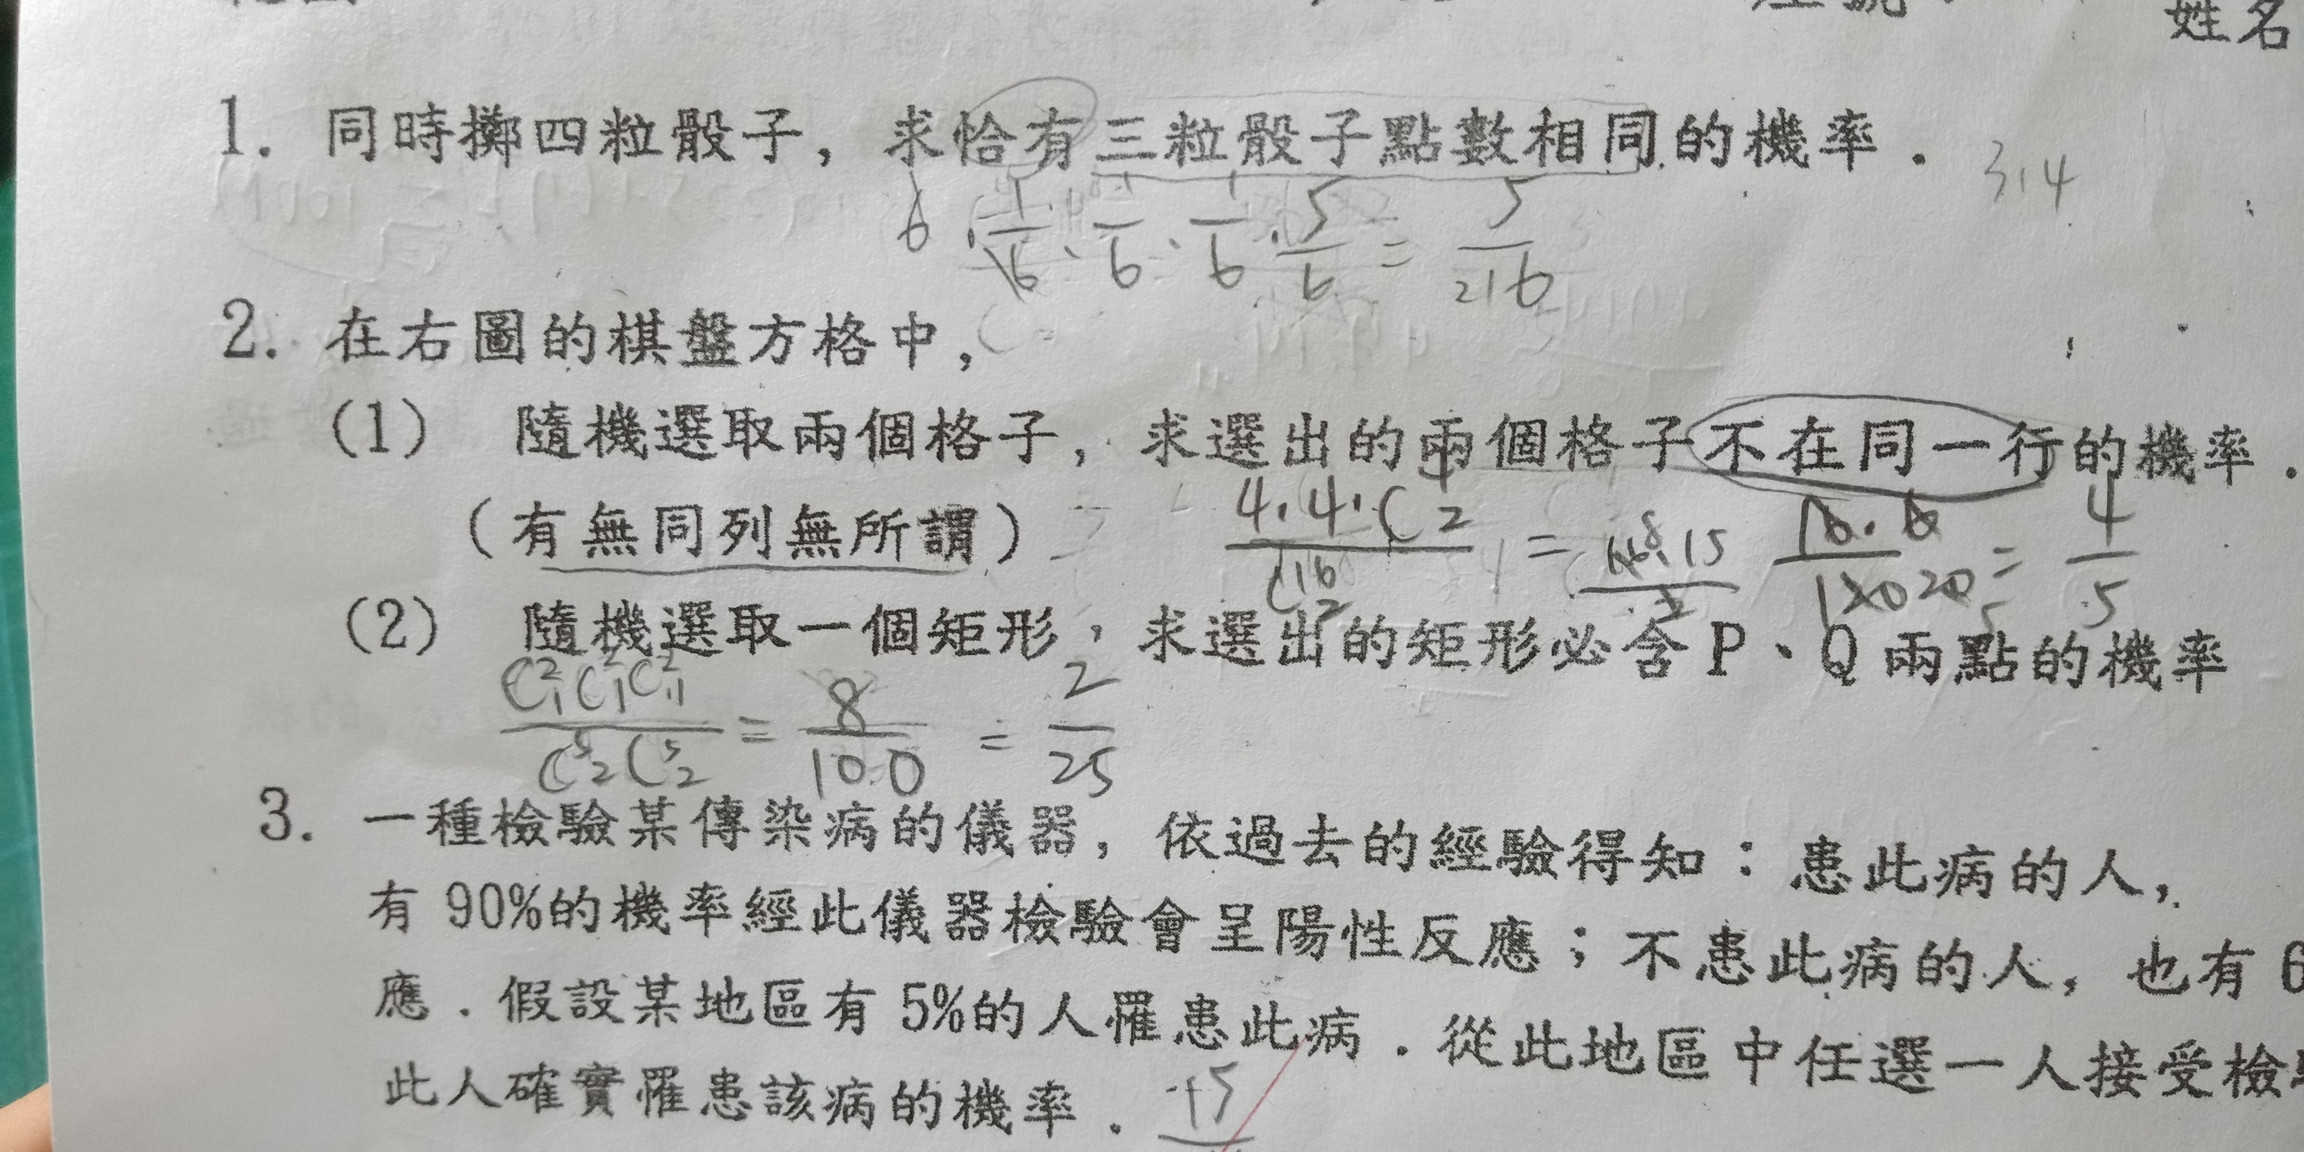 姓名
1. 同時擲四粒骰子，求恰有三粒骰子點數相同的機率．
3,4
6 · 1/6 · 1/6 · 1/6 · 5/6 = 5/216
2. 在右圖的棋盤方格中，
(1) 隨機選取兩個格子，求選出的兩個格子不在同一行的機率．
（有無同列無所謂）
= 4/5
(2) 隨機選取一個矩形，求選出的矩形必含 P、Q 兩點的機率
= 8/100 = 2/25
3. 一種檢驗某傳染病的儀器，依過去的經驗得知：患此病的人，
有 90%的機率經此儀器檢驗會呈陽性反應；不患此病的人，也有 6
應．假設某地區有 5%的人罹患此病．從此地區中任選一人接受檢
此人確實罹患該病的機率．